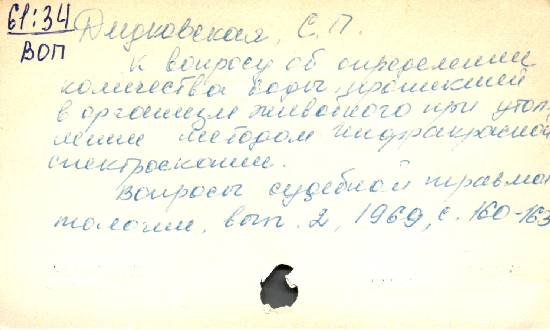 61:34
ВОП
Дидковская, С.П.
К вопросу об определении
количества воды, проникшей
в организм животного при утоп-
лении методом инфракрасной
спектроскопии.
Вопросы судебной травма
тологии, вып. 2, 1969, с. 160-163